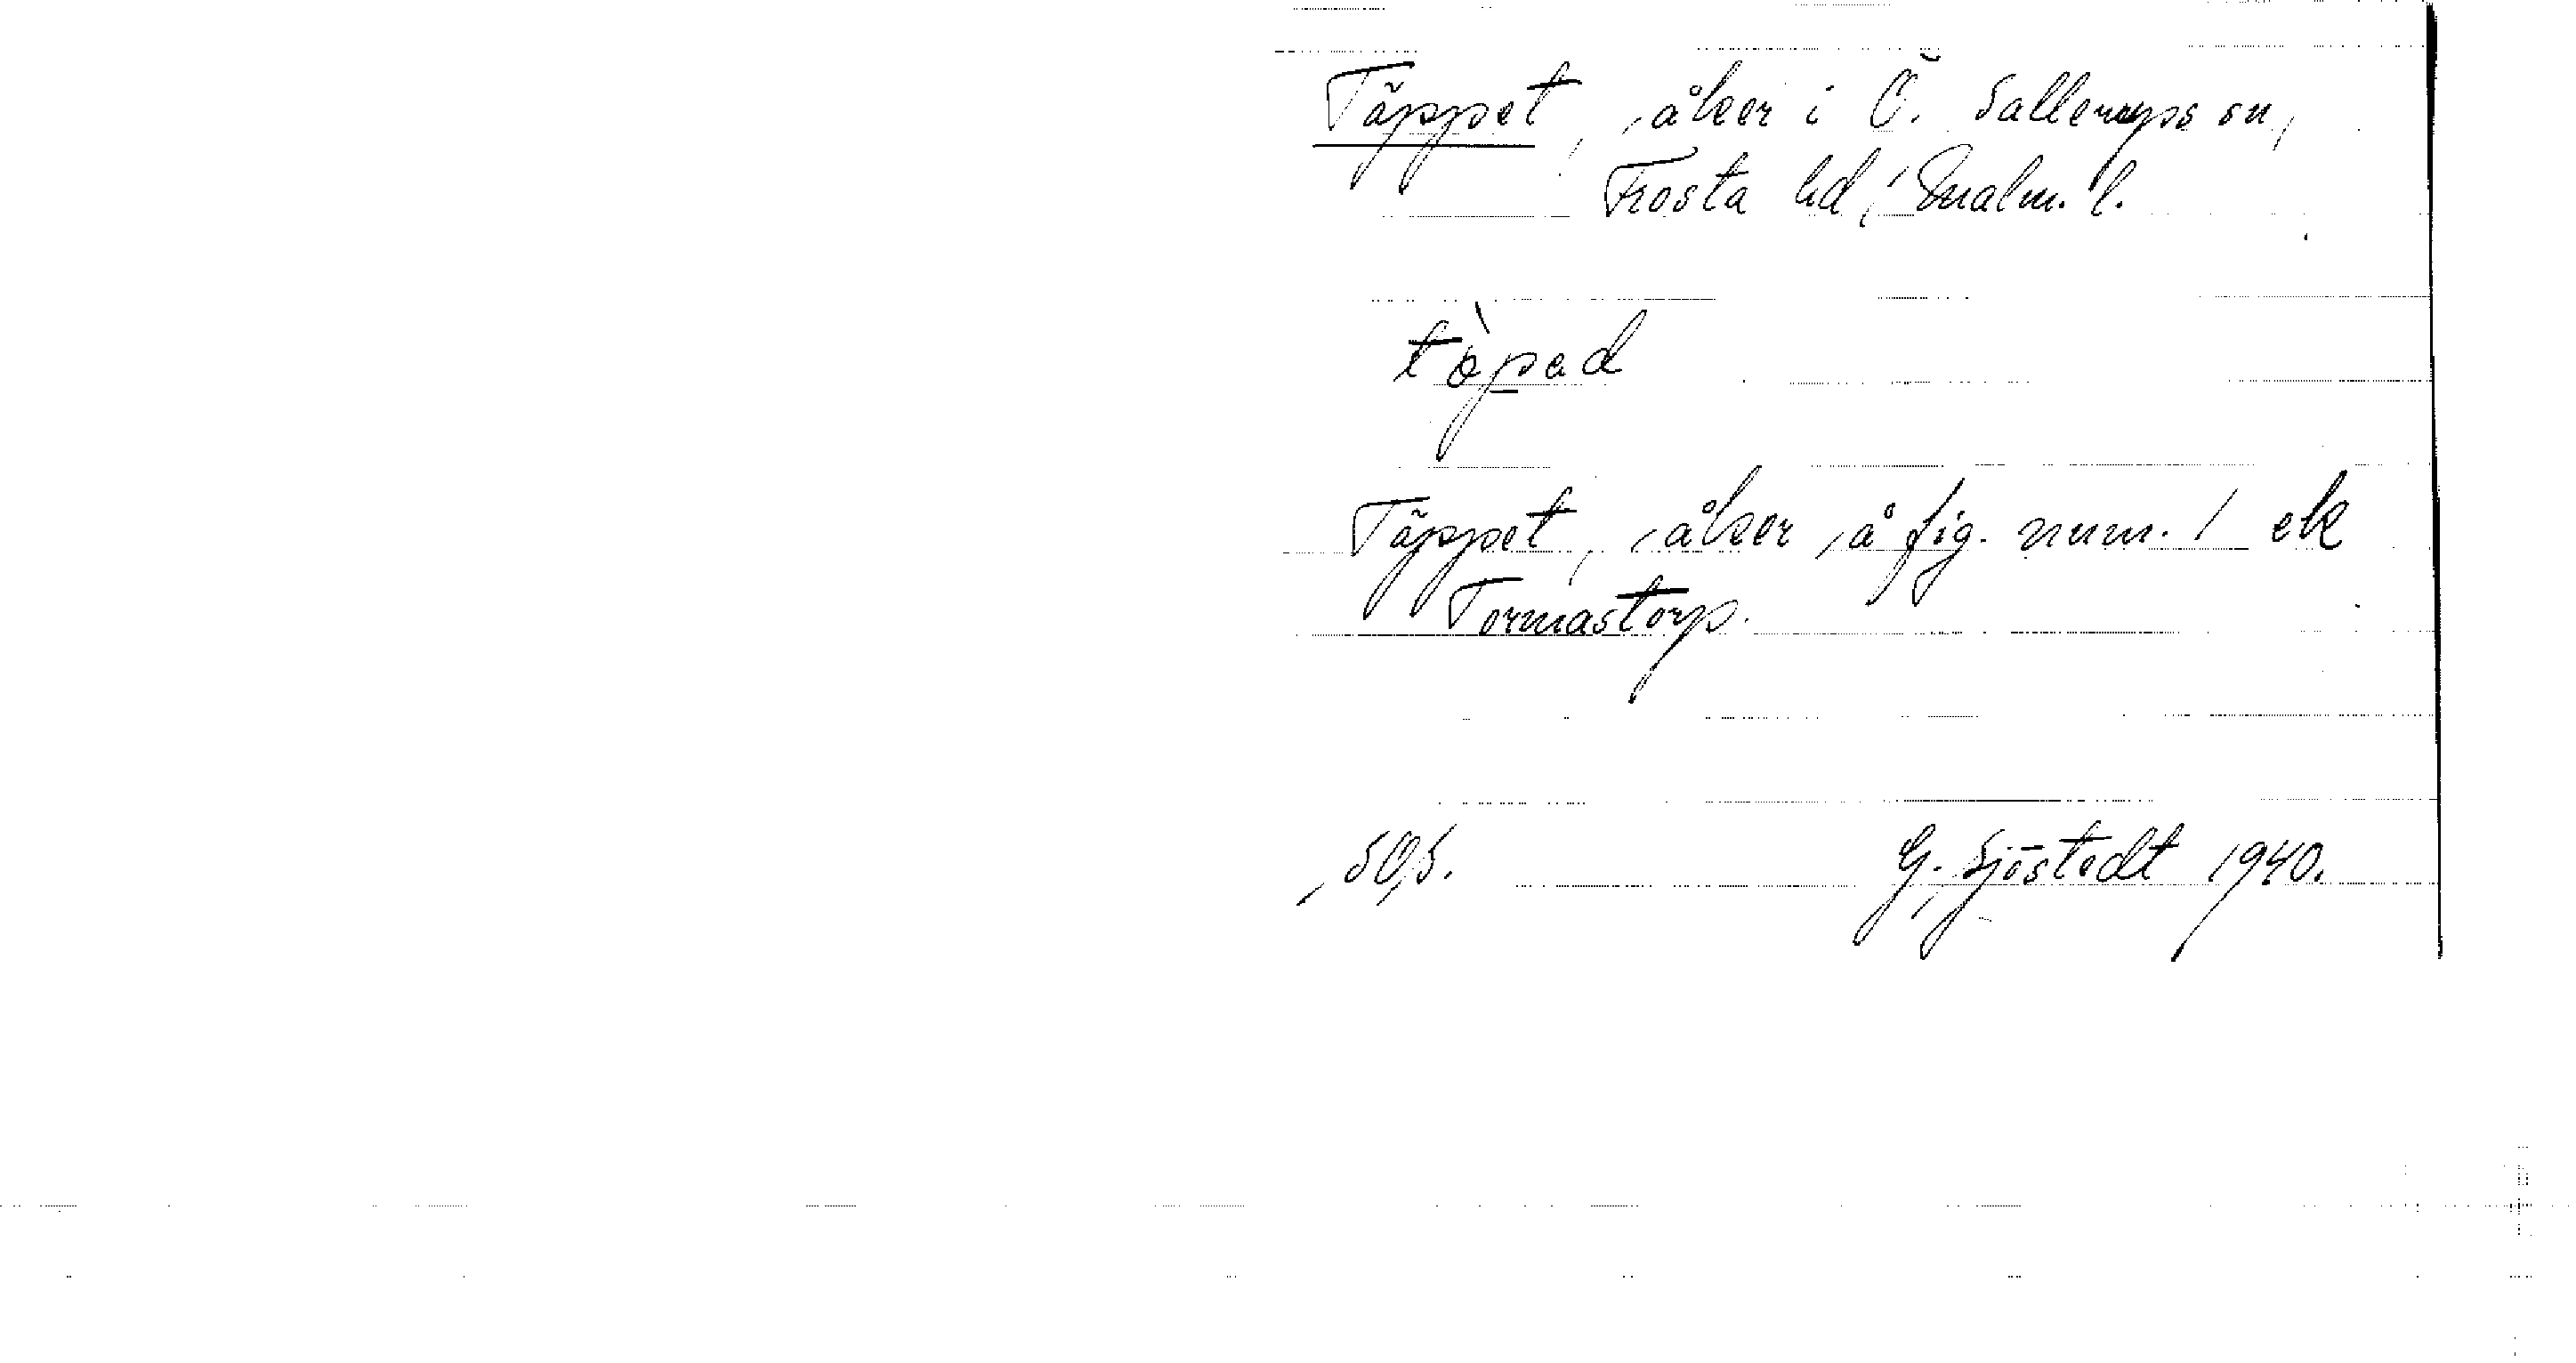 Täppet, åker i Ö. Sallerups sn,
Frosta hd, Malm. l.
tòpad
Täppet, åker å fig. num. 1 ek
Tormastorp.
SOS. G. Sjöstedt 1940.